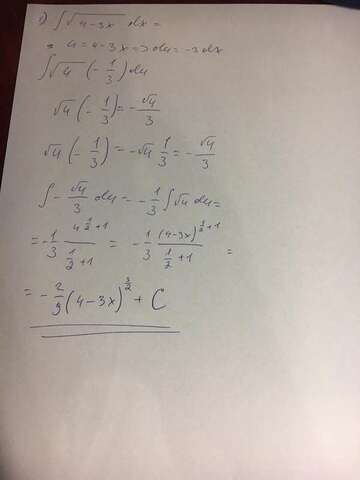 1) ∫√(4-3x) dx =
⇒ u = 4-3x => du = -3dx
∫√u (-1/3) du
√u (-1/3) = -√u/3
√u · (-1/3) = -√u 1/3 = -√u/3
∫ -√u/3 du = -1/3 ∫√u du =
= -1/3 u^(1/2+1)/(1/2+1) = -1/3 (4-3x)^(1/2+1)/(1/2+1) =
= -2/9 (4-3x)^(3/2) + C